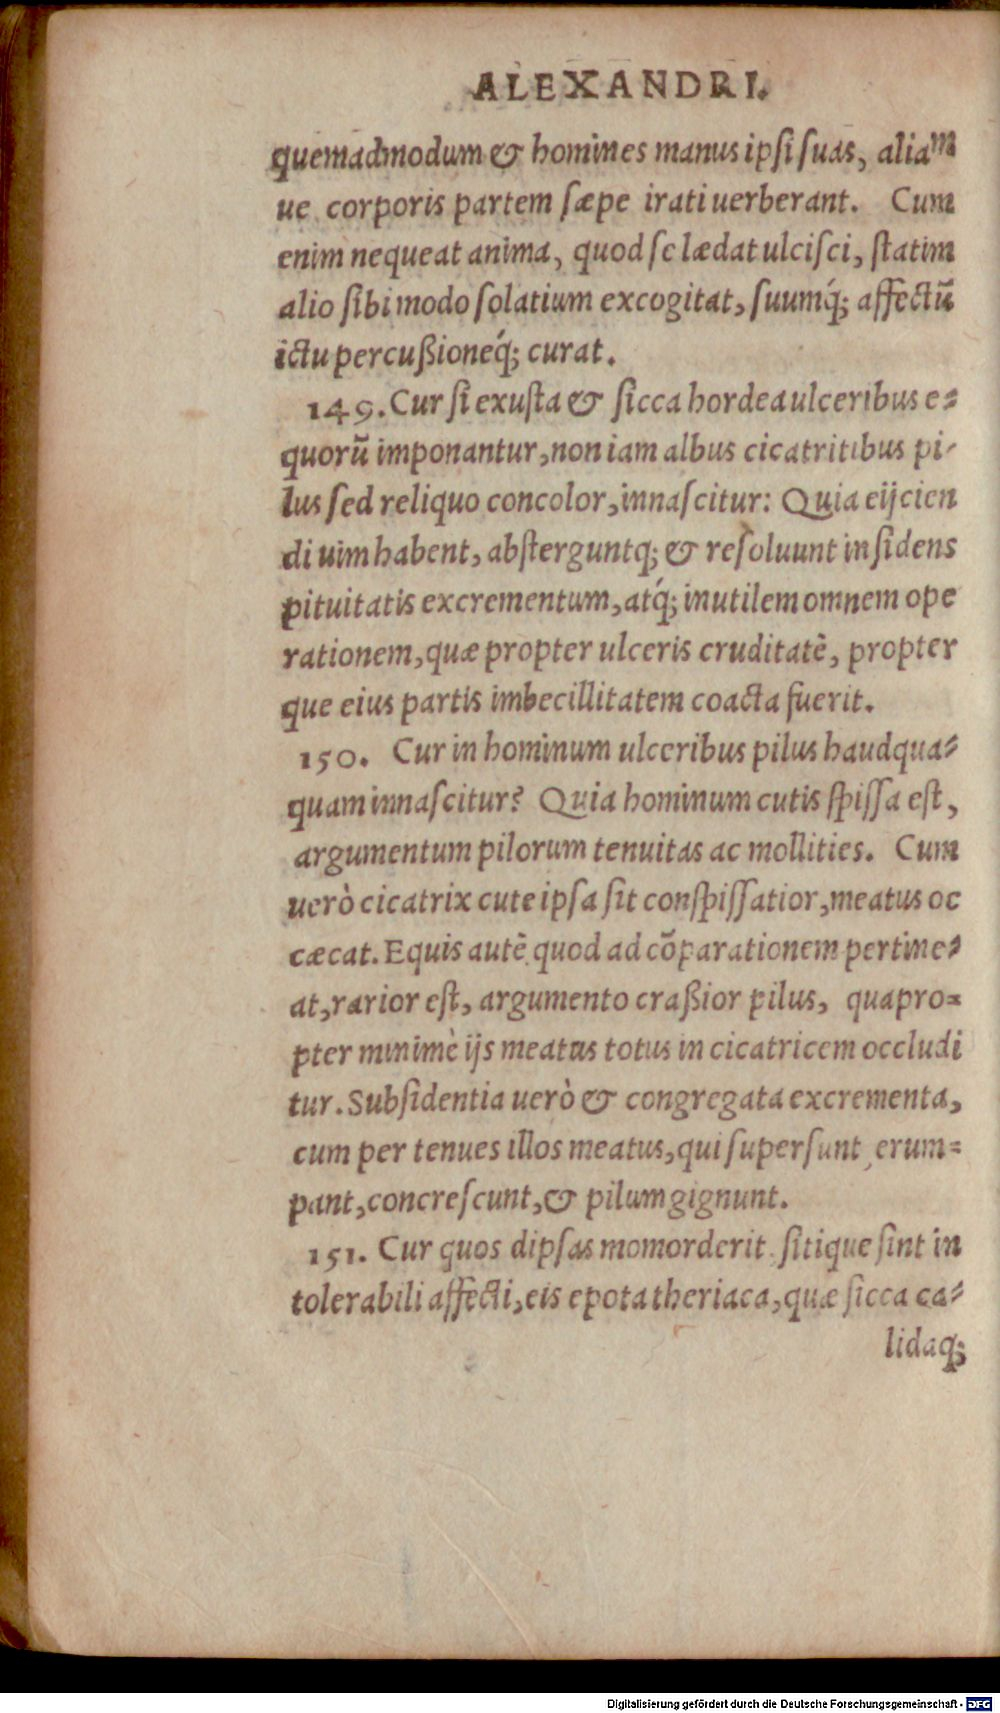 ALEXANDRI.
quemadmodum & homines manus ipsi suas, aliam
ue corporis partem sæpe irati uerberant. Cum
enim nequeat anima, quod se lædat ulcisci, statim
alio sibi modo solatium excogitat, suumq́; affectū
ictu percußioneq́; curat.
149. Cur si exusta & sicca hordea ulceribus e=
quorū imponantur, non iam albus cicatritibus pi-
lus sed reliquo concolor, innascitur: Quia eijcien
di uim habent, absterguntq; & resoluunt insidens
pituitatis excrementum, atq́; inutilem omnem ope
rationem, quæ propter ulceris cruditatē, propter
que eius partis imbecillitatem coacta fuerit.
150. Cur in hominum ulceribus pilus haudqua=
quam innascitur? Quia hominum cutis spissa est,
argumentum pilorum tenuitas ac mollities. Cum
uerò cicatrix cute ipsa sit conspissatior, meatus oc
cæcat. Equis autē quod ad cōparationem pertine=
at, rarior est, argumento craßior pilus, quapro=
pter minimè ijs meatus totus in cicatricem occludi
tur. Subsidentia uerò & congregata excrementa,
cum per tenues illos meatus, qui supersunt erum=
pant, concrescunt, & pilum gignunt.
151. Cur quos dipsas momorderit sitique sint in
tolerabili affecti, eis epota theriaca, quæ sicca ca=
lidaq;
Digitalisierung gefördert durch die Deutsche Forschungsgemeinschaft - DFG